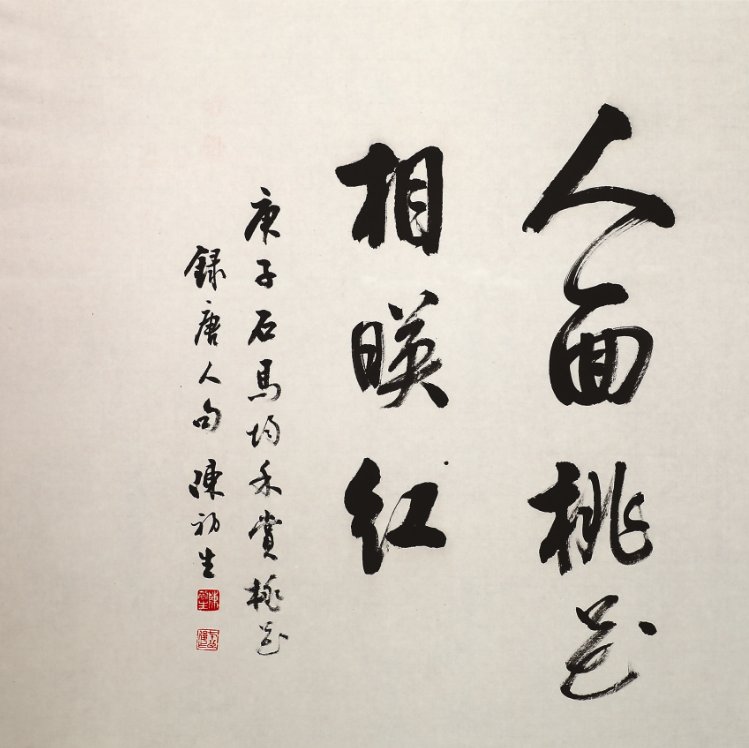 人面桃花
相暎红
庚子石马均禾赏桃花
録唐人句 陳初生